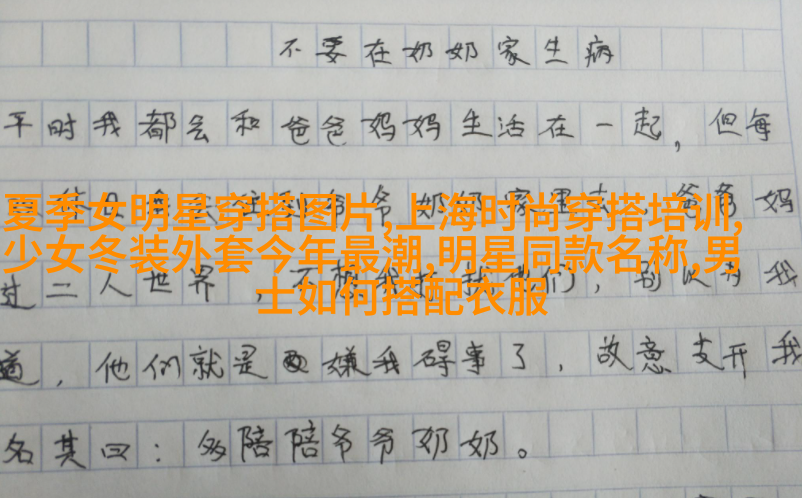 不要在奶奶家生病
平时我都会和爸爸妈妈生活在一起，但每
夏季女明星穿搭图片,上海时尚穿搭培训,
少女冬装外套今年最潮,明星同款名称,男
士如何搭配衣服
过二人世界，不想我打扰他们，别以为我
道，他们就是嫌我碍事了，故意支开我
名其曰：多陪陪爷爷奶奶。